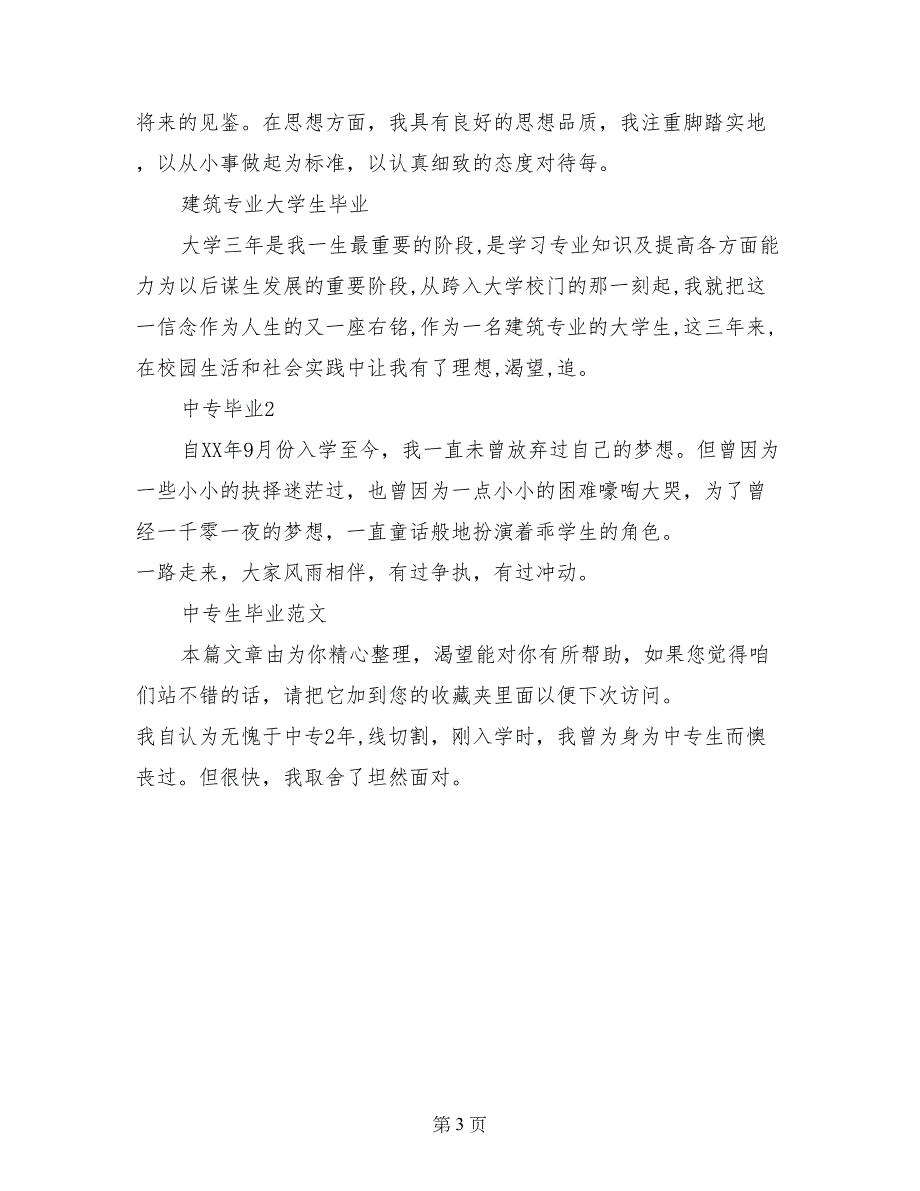 将来的见鉴。在思想方面，我具有良好的思想品质，我注重脚踏实地
，以从小事做起为标准，以认真细致的态度对待每。
建筑专业大学生毕业
大学三年是我一生最重要的阶段,是学习专业知识及提高各方面能
力为以后谋生发展的重要阶段,从跨入大学校门的那一刻起,我就把这
一信念作为人生的又一座右铭,作为一名建筑专业的大学生,这三年来,
在校园生活和社会实践中让我有了理想,渴望,追。
中专毕业2
自XX年9月份入学至今，我一直未曾放弃过自己的梦想。但曾因为
一些小小的抉择迷茫过，也曾因为一点小小的困难嚎啕大哭，为了曾
经一千零一夜的梦想，一直童话般地扮演着乖学生的角色。
一路走来，大家风雨相伴，有过争执，有过冲动。
中专生毕业范文
本篇文章由为你精心整理，渴望能对你有所帮助，如果您觉得咱
们站不错的话，请把它加到您的收藏夹里面以便下次访问。
我自认为无愧于中专2年,线切割，刚入学时，我曾为身为中专生而懊
丧过。但很快，我取舍了坦然面对。
第 3 页